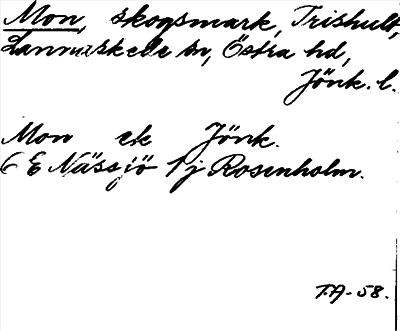 Mon, skogsmark, Trishult,
Lannaskede sn, Östra hd,
Jönk. l.
Mon ek Jönk.
6 E Nässjö 1j Rosenholm.
T.A-58.